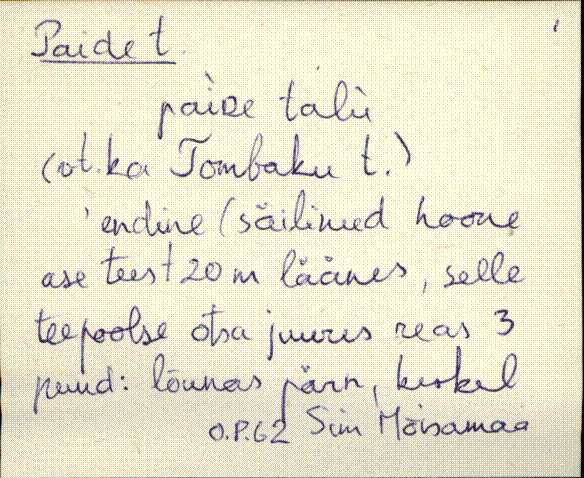 Paide t.
pàiDe talù
(vt. ka Tombaku t.)
'endine (säilinud hoone
ase teest 20 m läänes, selle
teepoolse otsa juures reas 3
puud: lõunas pärn, keskel
O.P.62 Sim Mõisamaa